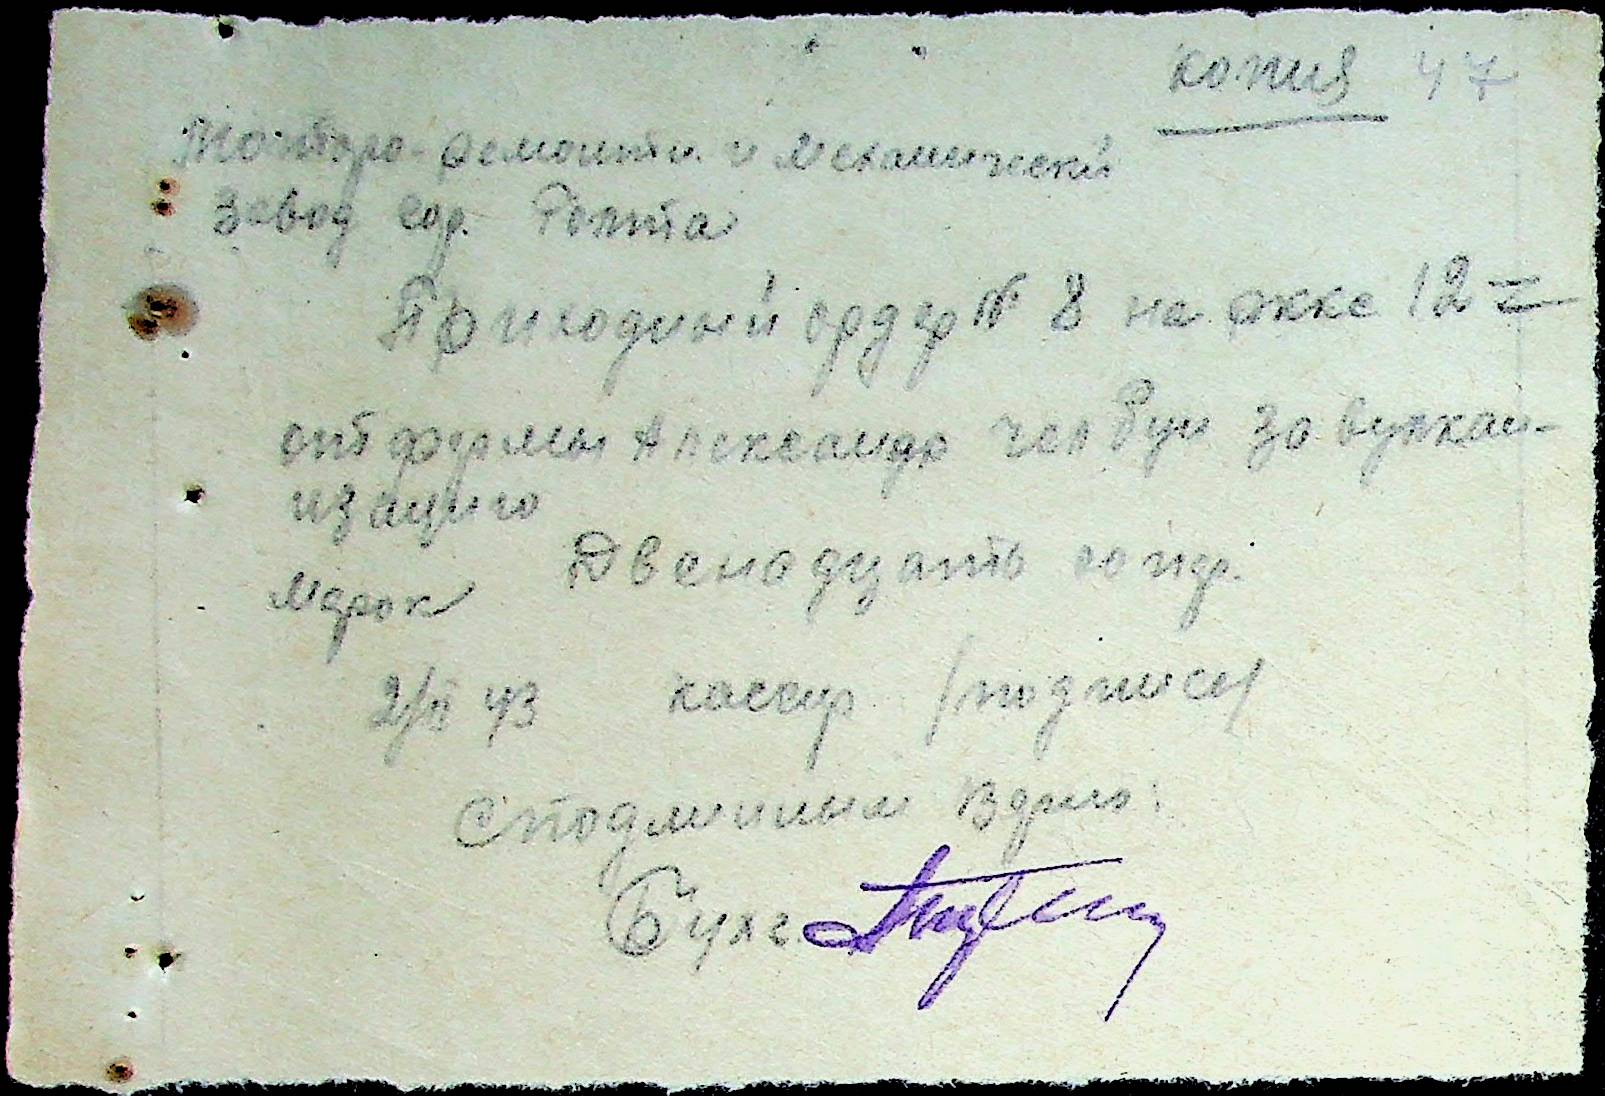 копия 47
Моторо-ремонтн. и механический
завод гор.
Приходный ордер № 8 на 12=
от фирмы Александр за вулкан-
изацию
Двенадцать
марок
2/II 43 кассир /подпись/
С подлинным верно:
Бухг.